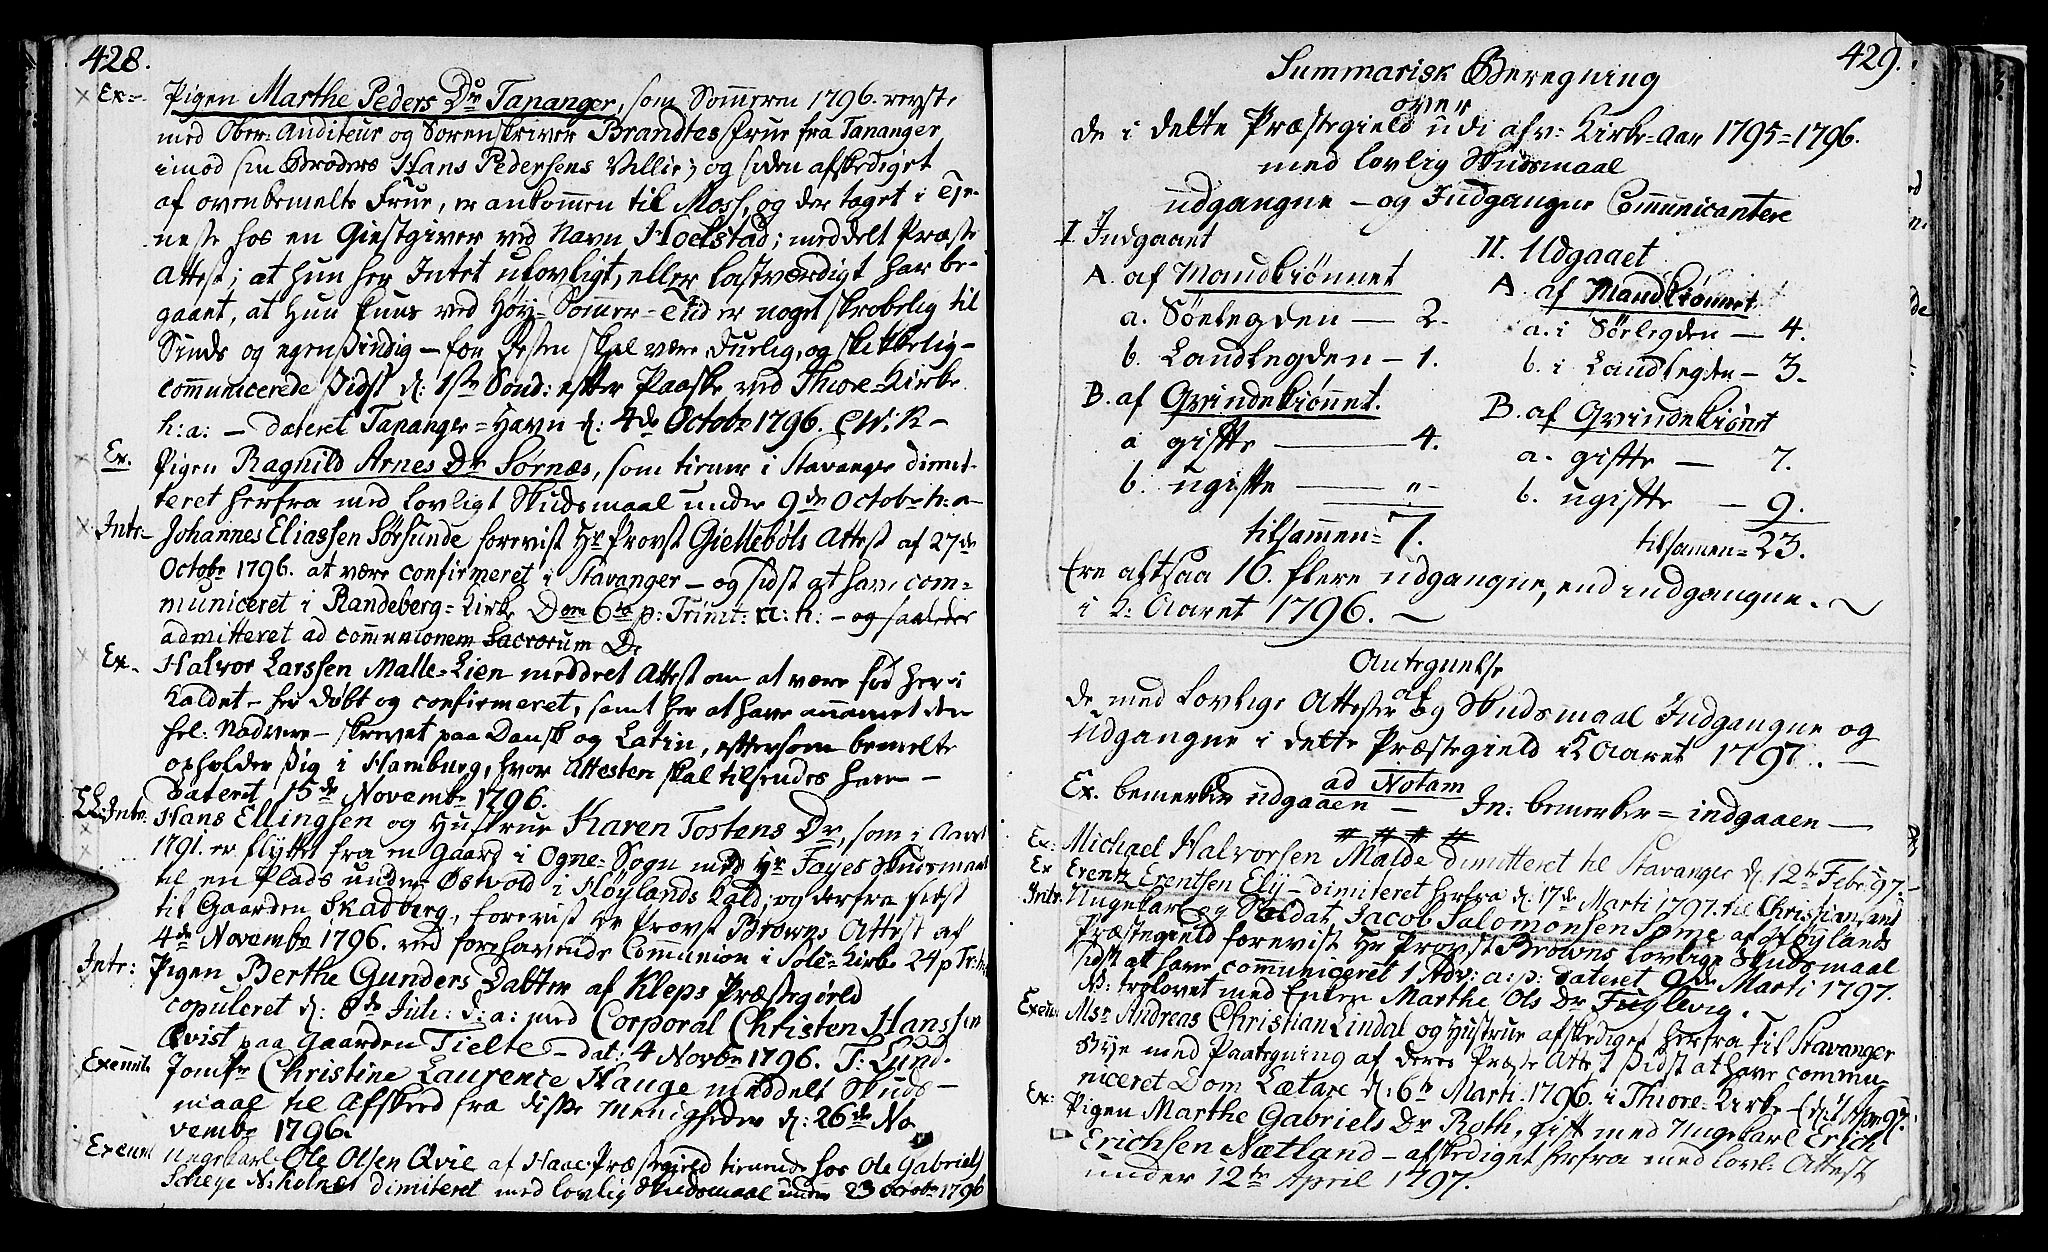 428.
Ex= Pigen Marthe Peders Dr Tananger, som Sommeren 1796. reyste
med Ober-Auditeur og Sorenskriver Brandtes Frue fra Tananger
imod sin Broders Hans Pedersens Villie; og siden afskediget
af ovenbemelte Frue, er ankommen til Moss, og der taget i Tje-
neste hos en Giestgiver ved Navn Hoelstad; meddelt Præste
Attest; at hun her Intet ulovligt, eller lastværdigt har be-
gaaet, at hun kuns ved Høy-Sommer-Tid er noget skrøbelig til
Sinds og egensindig - for Resten skal være duelig, og skikkelig -
communicerede sidst d: 1ste Sønd: efter Paaske ved Thiore-Kirke
h: a: - dateret Tananger-Havn d: 4de Octobr 1796.
Ex. Pigen Ragnild Arnes Dr Sørnæs, som tiener i Stavanger dimit-
teret herfra med lovligt Skudsmaal under 9de Octobr h: a-
Intr- Johannes Eliassen Sørsunde forevist Hr Provst Giellebøls Attest af 27de
Octobr 1796. at være confirmeret i Stavanger - og sidst at have com=
municeret i Randeberg=Kirke Dom 6ta p: Trinit: a: h: - og saaledes
admitteret ad communionem Sacrorum
Ex. Halvor Larssen Malle=Lien meddeelt Attest om at være fød her i
Kaldet - her døbt og confirmeret, samt her at have annamet den
hel: Nadvere - skrevet paa Dansk og Latin, eftersom bemelte
opholder sig i Hamburg, hvor Attesten skal tilsendes ham -
dateret 15de Novembr 1796.
Intr: Hans Ellingsen og Hustrue Karen Tostens Dr, som i Aaret
1791. er flyttet fra en Gaard i Ogne=Sogn med Hr Fayes Skudsmaal
til en Plads under Osvold i Høylands Kald; og derfra sidst
til Gaarden Skadberg, forevist Hr Provst Browns Attest af
4de Novembr 1796. ved forehavende Communion i Sole=Kirke 24 p Tr:
Intr: Pigen Berthe Gunders Datter af Kleps Præstegield
copuleret d: 8de Julii: d: a: med Corporal Christen Hanssen
Qvist paa Gaarden Tielte - dat: 4 Novbr 1796. T: Lund.
Exeunt. Jomfr Christine Laurence Hauge meddelt Skuds-
maal til Afskeed fra diste Menigheder d: 26de No
vembr 1796.
Exeunt Ungekarl Ole Olsen Qvie af Haae Præstegield tienende hos Ole Gabriels
dimiteret med lovlig Skudsmaal under 23 Octobr 1796
429.
Summarisk Beregning
over
de i dette Præstegield udi afv: Kirke=Aar 1795=1796.
med lovlig Skudsmaal
udgangne - og Indgangne Communicantere
I Indgaaet
A. af Mandkiønnet
a. Søelegden — 2.
b. Landlegden - 1.
B. af Qvindekiønnet.
a giftte — 4.
b. ugifte — „-
tilsammen= 7.
II. Udgaaet
A af Mandkiønnet
a. i Sørlegden - 4.
b. i Landlegden - 3.
B. af Qvindekiønet
a. giftte — 7.
b. ugiftte — 9.
tilsamen= 23.
Ere altsaa 16. flere udgangne, end indgangne.
i K: Aaret 1796.
Antegnelse
af
de med lovlige Attester og Skudsmaal Indgangne og
Udgangne i dette Præstegield K Aaret 1797.
ad Notam
Ex. bemerker udgaaen — In: bemerker = indgaaen —
Ex: Michael Halvorsen Malde dimitteret til Stavanger d: 12te Febr: 97.
Ex Erentz Erentsen Elj - dimiteret herfra d: 17de Marti 1797. til Christiansand
Intr. Ungekarl og Soldat Jacob Salomonsen Some af Høylands
Præstegield forevist Hr Provst Browns lovlige Skudsmaal
sidst at have communiceret 1 Adv: a: p: dateret 9de Marti 1797.
NB: trolovet med Enken Marthe Ols Dr Fuglevig.
Exeunt Msr Andreas Christian Lindal og Hustrue afskediget herfra til Stavanger
Bye med Paategning af deres Præste Attest sidst at have commu-
niceret Dom Lætare d: 6te Marti 1796. i Thiore=Kirke
Ex: Pigen Marthe Gabriels Dr Roth, gift med Ungekarl Erich
Erichsen Nætland - afskediget herfra med lovl: Attest
under 12te April 1797.